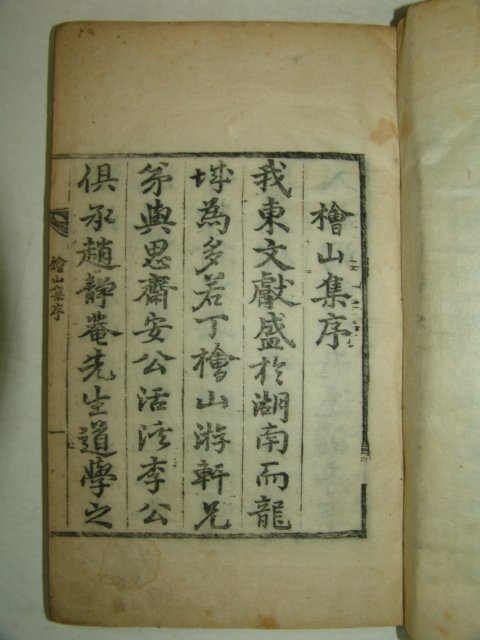 檜山集序
我東文獻盛扵湖南而龍
城為多若丁檜山游軒兄
苐與思齋安公活溪李公
俱承趙靜菴先生道學之
檜山集序
一